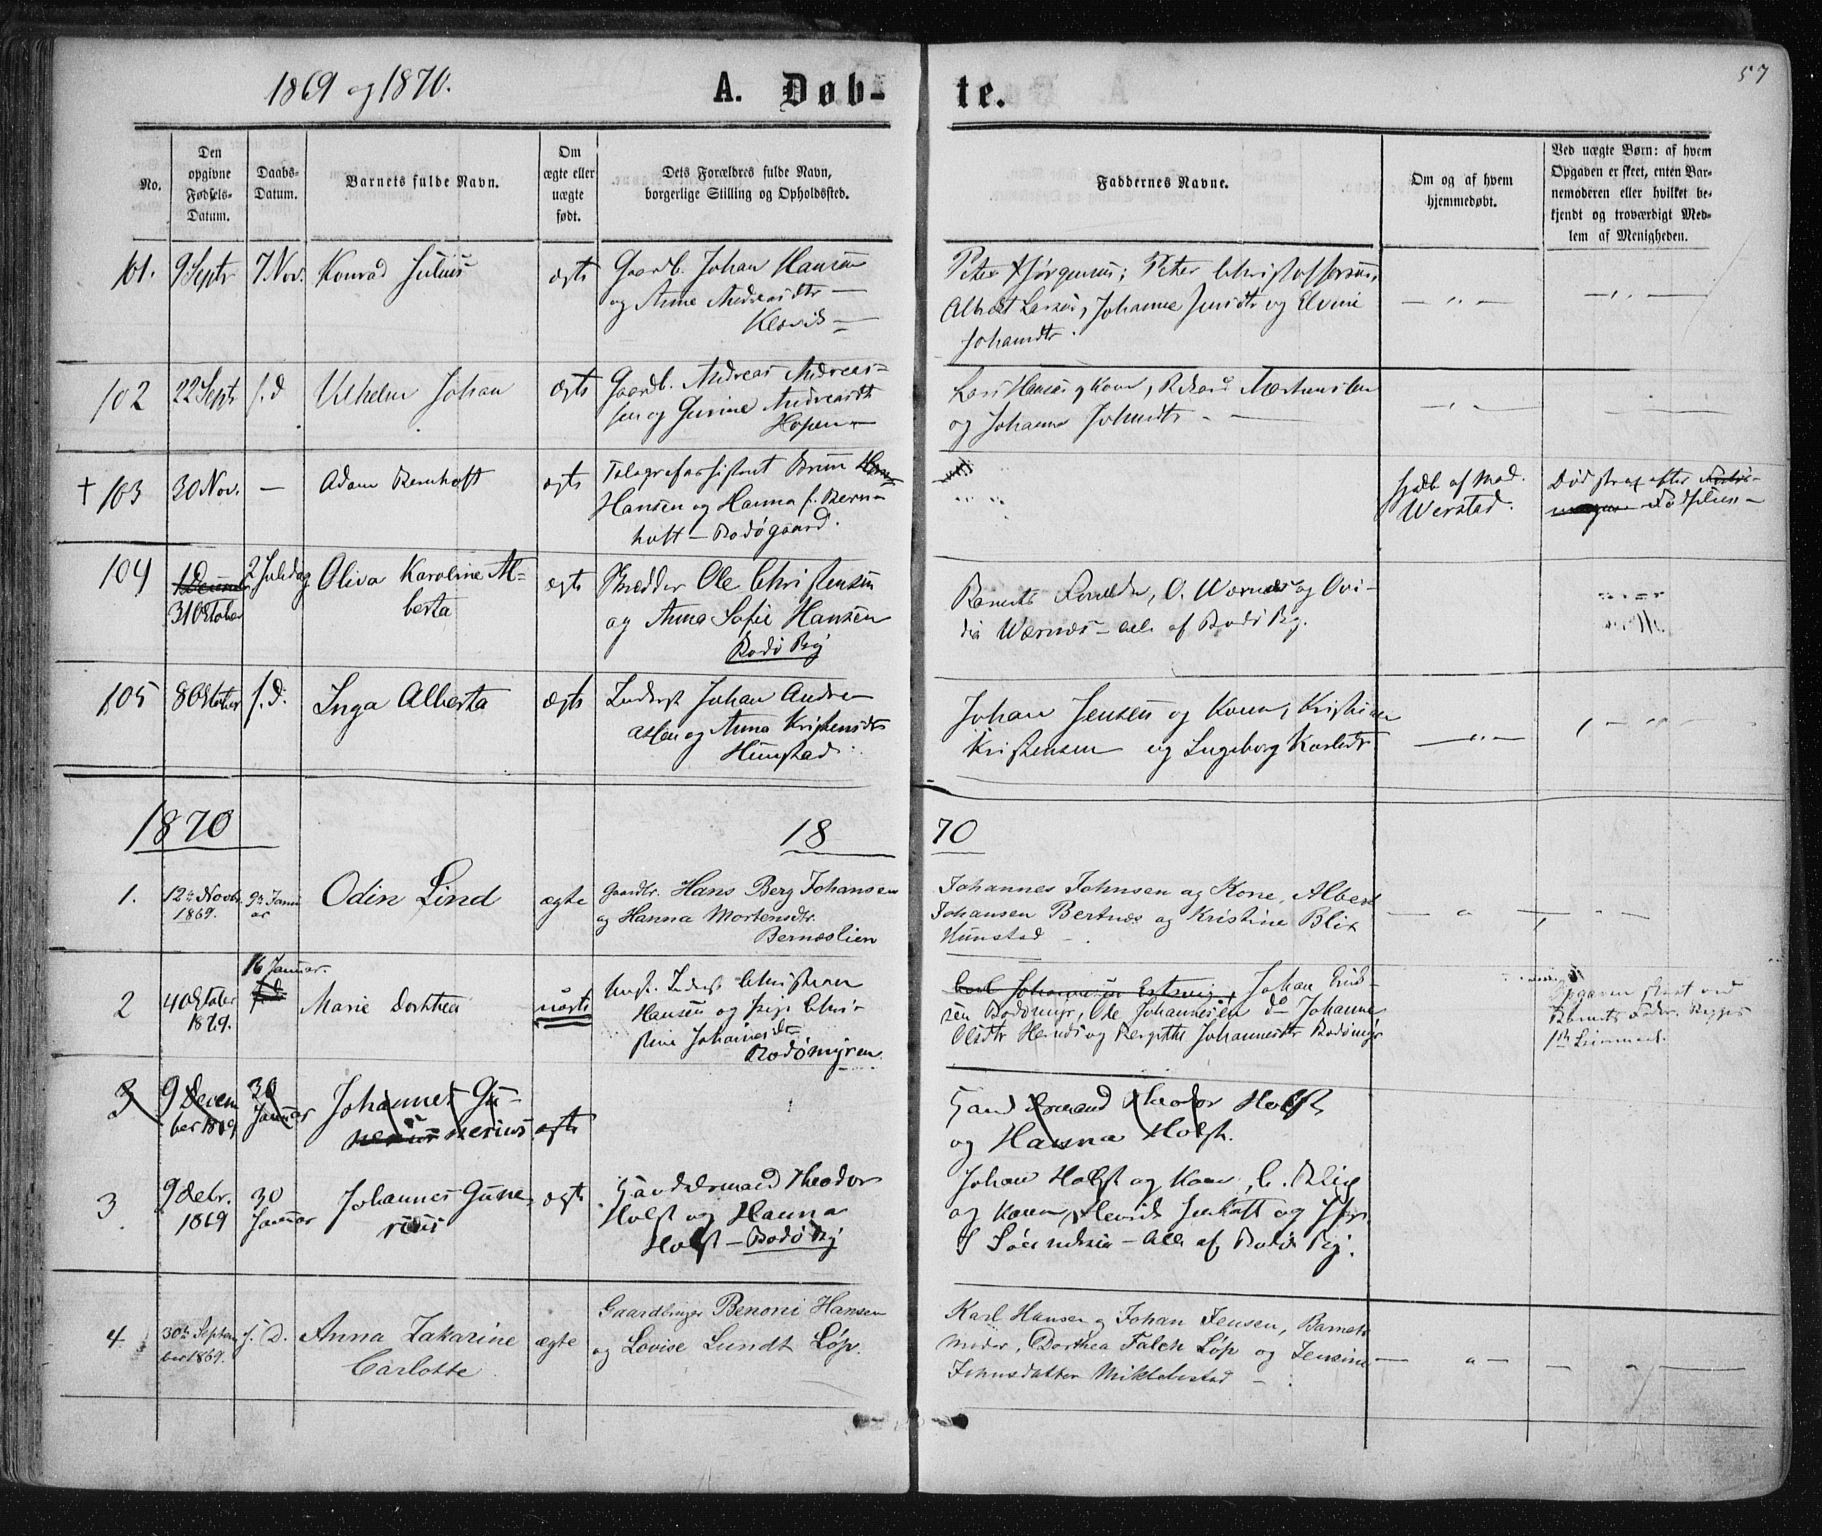 1869 og 1870.
A. Døb-
te.
57
No.
Den
opgivne
Fødsels-
Datum.
Daabs-
Datum.
Barnets fulde Navn.
Om
ægte eller
uægte
født.
Dets Forældres fulde Navn,
borgerlige Stilling og Opholdssted.
Faddernes Navne.
Om og af hvem
hjemmedøbt.
Ved uægte Børn: af hvem
Opgaven er skeet, enten Bar-
nemoderen eller hvilket be-
kjendt og troværdigt Med-
lem af Menigheden.
101.
9 Septr
7. Nov.
Konrad Julius
ægte
Gaardb. Johan Hansen
og Anne Andreasdtr
Peter Jørgensen; Peter Christoffersen,
Albert Larsen, Johanne Jensdtr og Elvine
Johansdtr.
102
22 Septr
s. d
Vilhelm Johan
ægte
Gaardb. Andreas Andreas-
sen og Gurine Andreasdtr
Hopen
Lars Hansen og Kone, Rikard Mortensen
og Johanna Johnsdtr
† 103
30 Nov.
—
Adam Bernhoft
ægte
Telegrafassistent Brun
Hansen og Hanna f. Bern-
hoft — Bodøgaard.
hjdb. af Mad.
Werstad.
Død strax efter
Fødselen
104
1 December
31 Oktober
2 Juledag
Oliva Karoline Al-
berta
ægte
Skrædder Ole Christensen
og Anna Sofie Hansen
Bodø By
Barnets Forældre, O. Wærnes og Ovi-
dia Wærnes — alle af Bodø By.
105
8 Oktober
s. d.
Inga Alberta
ægte
Inderst Johan Andre-
assen og Anna Kristensdtr
Hunstad
Johan Jensen og Kone, Kristian
Kristensen og Ingeborg Karlsdtr
1870
18
70
1.
12te Novbr.
1869.
9de Janu
ar
Odin Lind
ægte
Gaardbr. Hans Berg Johansen
og Hanna Mortensdtr.
Bernæslien
Johannes Johnsen og Kone, Albert
Johansen Bertnæs og Kristine Blix
Hunstad
2
4 Oktober
1869.
16 Januar.
s. d.
Marie Dorthea
uægte
Ungk. Inderst Christian
Hansen og Pige Chri-
stine Johannesdtr
Bodømyren
Carl Johannesen, Johan Erik-
sen Bodømyr, Ole Johannesen do Johanne
Olsdtr Hernes og Bergitte Johannesdtr Bodømyr
Opgaven skeet ved
Barnets Fader. Begges
1ste Leiermaal.
3
9 Decem
ber 1869
30
Januar
Johannes Gu-
nerius nerius
ægte
Handelsmand Theodor Holst
og Hanna Holst.
3
9 Decbr.
1869
30
Januar
Johannes Gune-
rius
ægte
Handelsmand Theodor
Holst og Hanna
Holst — Bodø By
Johan Holst og Kone, C.
og Kone, Jentoft og
S Sørensen — Alle af Bodø By.
4
30te Septem
ber 1869.
s. D.
Anna Zakarine
Carlotte
ægte
Gaardbruger Benoni Hansen
og Lovise Lundt Løp.
Karl Hansen og Johan Jensen, Barnets
Moder, Dorthea Falch Løp og Jensine
Johnsdatter Miklebostad